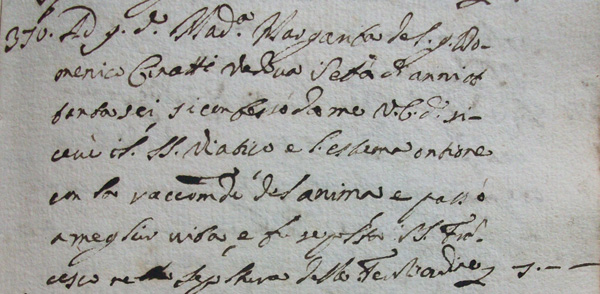 370. Ad 9. d.º Mad.ª Margarita del q. Do-
menico vedua d'età d'anni ot
tanta sei, si confessò da me V.C. di. ri-
cevè il SS. Viatico e l'estrema ontione
con la raccom.de del anima e passò
a meglior vita, e fù sepolta in S. Fran.
cesco nella sepoltura delle